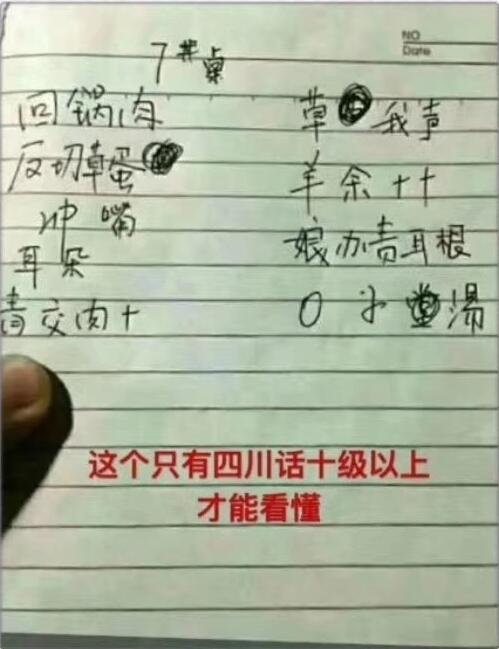 NO
Date
7#桌
回锅肉
反切草蛋
冲嘴
耳朵
青交肉十
草 我声
羊余十十
娘办青耳根
O 子 湯
这个只有四川话十级以上
才能看懂